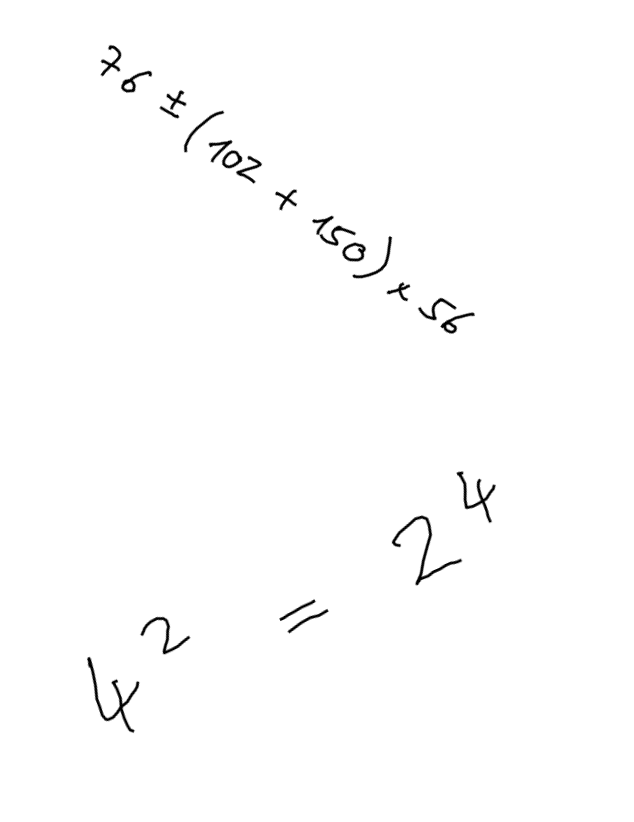 76 ± (102 + 150) × 56
4² = 2⁴